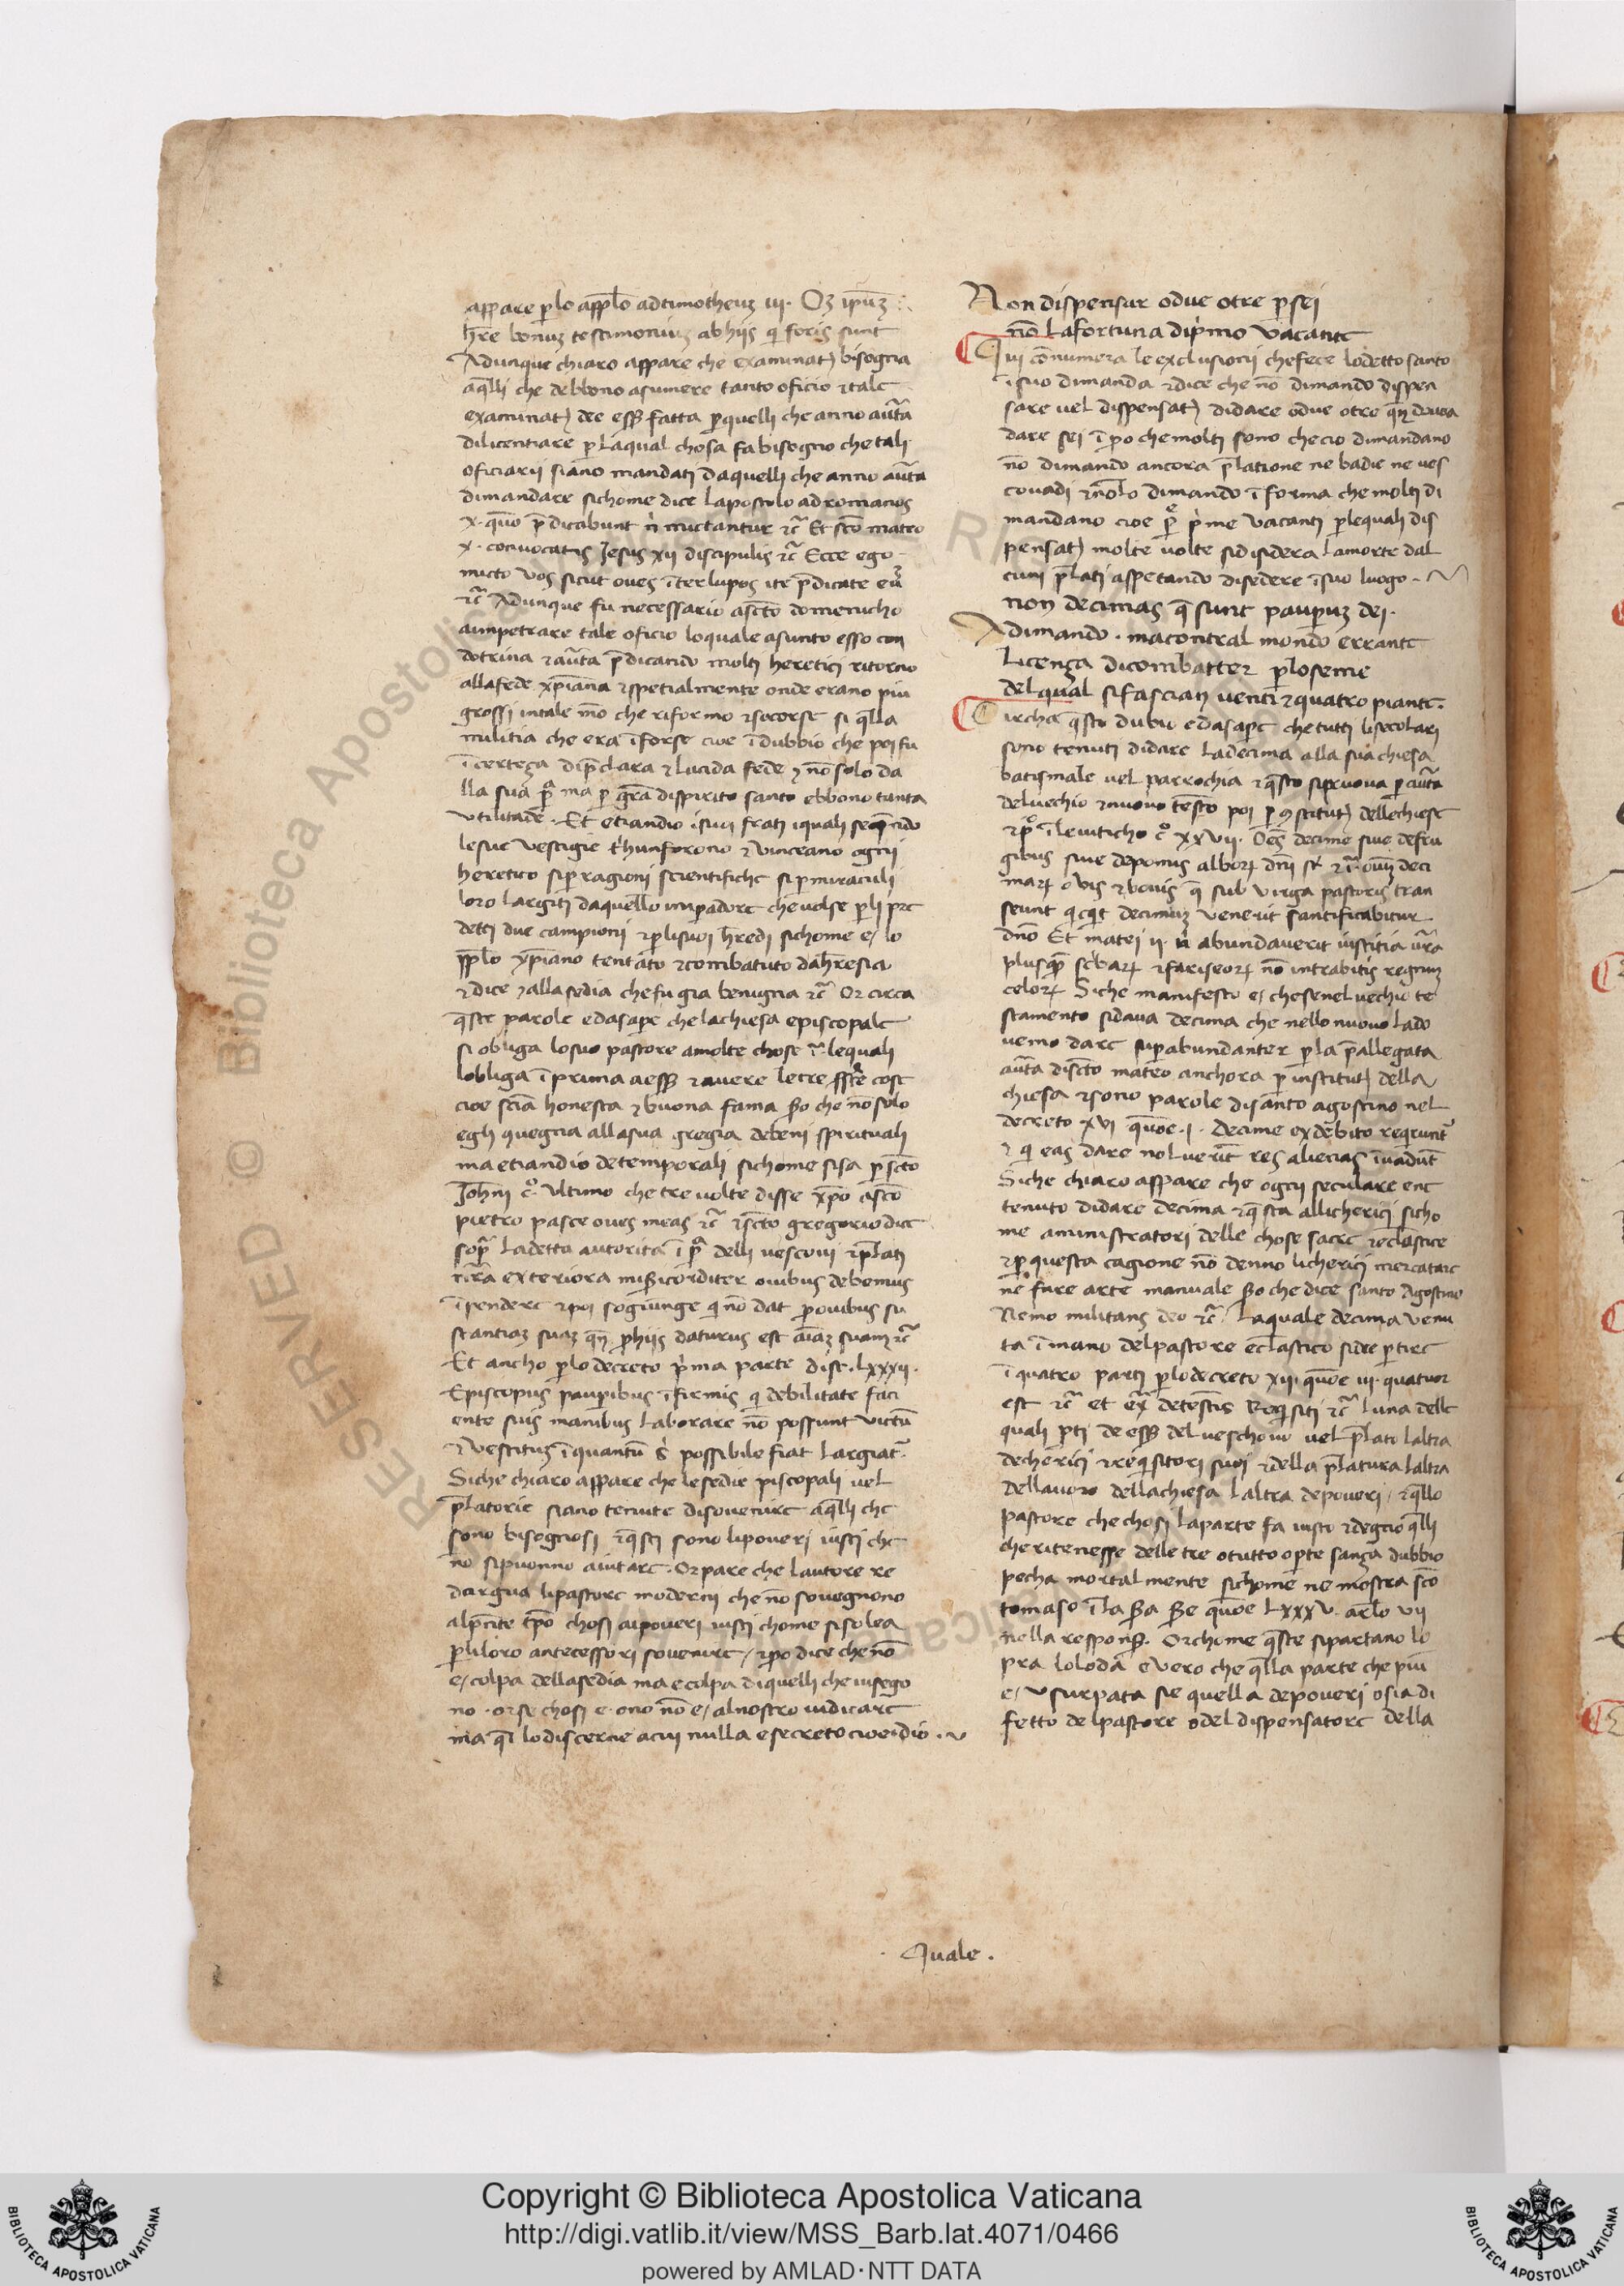 appare p̱lo app̄lo ad timotheuʒ iij. Oʒ ip̄uʒ
h̄re bonuʒ testimoniuʒ ab hijs q̇ foris sunt
Adunque chiaro appare che examinatꝫ bisogna
aq̄lli che debbono asumere tanto oficio ⁊ tale
examinatꝫ dee ess̱ fatta ꝑquelli che anno aut̄a
dilicentiare ꝑ laqual chosa fa bisogno che tali
oficiarij siano mandati daquelli che anno aut̄a
dimandare sichome dice lapostolo ad romanos
x. quō p̄dicabunt n̄ mictantur ⁊c̄ Et sc̄o mateo
x. convocatis Jesus xij discipulis ⁊c̄ Ecce ego
micto vos sicut oues īter lupos ite p̄dicate
⁊c̄ Adunque fu necessario asc̄to domenicho
aimpetrare tale oficio loquale asunto esso con
dotrina ⁊ aut̄a p̄dicando molti heretici ritorno
alla fede xp̄iana ⁊ spetialmente onde erano piu
grossi in tale mō che riformo ⁊ socorse si q̄lla
militia che era ī forse cioe ī dubbio che poi fu
ī certeça di p̄clara ⁊ lucida fede ⁊ nō solo da
lla sua ma ꝑ gr̄a dispirito santo ebbono tanta
vtilitade. Et etiandio isuoi frati iquali seq̄ndo
lesue vestigie thrunforono ⁊ vinceano ogni
heretico si ꝑ ragioni scientifiche si ꝑ miraculi
loro largiti daquello imꝑadore che volse ꝑli pre
detti due campioni ⁊ ꝑlisuoi h̄redi sichome e/ lo
pp̄lo xp̄iano tentato ⁊ combatuto dah̄resia
⁊ dice ⁊ alla sedia che fu gia benigna ⁊c̄ Or circa
q̄ste parole e dasape che la chiesa episcopale
si obliga lo suo pastore a molte chose lequali
lobliga ī prima a ess̱ ⁊ avere le tre cose
cioe sc̄ia honesta ⁊ buona fama ꝑo che nō solo
egli ꝗuegna alla sua gregia debeni spirituali
ma etiandio de temporali sichome si sa ꝑ sc̄to
Joh̄ni c̊. vltimo che tre volte disse xp̄o asc̄o
pietro pasce oues meas ⁊c̄ ⁊ sc̄to gregorio dice
sop̄ la detta autorita delli vescovi ⁊ p̄lati
nr̄a exteriora misericorditer ouibus debemus
īpendere ⁊ poi sogiunge q̇ nō dat ꝑ ouibus su
stantiaʒ suaʒ qn̄ ꝑ hijs daturus est aīaʒ suam ⁊c̄
Et ancho ꝑlo decreto p̍ma parte dist. lxxxij.
Episcopus pauꝑibus īfirmis q̇ debilitate faci
ente suis manibus laborare nō possunt victū
⁊ vestituʒ īquantū possibile fiat largiat̄
Siche chiaro appare che le sedie piscopali vel
p̄latorie siano tenute disovenire aq̄lli che
sono bisognosi ⁊ q̄sti sono lipoveri iusti che
nō si puonno aiutare. Or pare che lautore re
dargua lipastore moderni che nō sovegnono
alp̄nte tp̄o chosi aipoveri iusti chome si solea
ꝑliloro antecessori sovenire / ⁊ ꝑo dice che nō
e/ colpa della sedia ma e colpa di quelli che inisego
no. or se chosi e. o no nō e/ al nostro iudicare
ma q̄l lo discerne acui nulla e secreto cioe idio.
Non dispensar o due o tre ꝑ sei
nō la fortuna di p̍mo vacante
Qui cōnumera le exclusioni che fece lodetto santo
ī suo dimanda ⁊ dice che nō dimando dispen
sare vel dispensatꝫ di dare o due o tre qn̄ dovea
dare sei ī ꝑo che molti sono che cio dimandano
nō dimando ancora p̄latione ne badie ne ves
covadi ⁊ nō lo dimando ī forma che molti di
mandano cioe p̍me vacanti ꝑ lequali dis
pensatꝫ molte volte si disidera la morte dal
cuni p̄lati aspetando di sedere ī suo luogo.
non decimas q̄ sunt pauꝑuʒ dei.
Adimando. ma contral mondo errante
Licença di combatter ꝑ lo seme
del qual si fascian venti ⁊ quatro piante.
Circha q̄sto dubio e da saꝑe che tutti li secolari
sono tenuti di dare la decima alla sua chiesa
batismale vel parrochia ⁊ q̄sto si pruova ꝑ aut̄a
del vechio ⁊ nuovo test̄o poi ꝑ ꝯstitutꝫ delle chiese
⁊ p̊ ī levitichо c̊ xxvij. Oēs decime sive de fru
gibus sive de pomis alborꝝ dn̄i st̄ ⁊ oīuʒ deci
marꝝ ovis ⁊ bovis q̄ sub virga pastoris tran
seunt q̇cq̇t decimuʒ venerit santificabitur
dn̄o Et matei ij. n̄ abundaverit iustitia vr̄a
plusq̄ sc̍barꝝ ⁊ fariseorꝝ nō intrabitis regnuʒ
celorꝝ Siche manifesto e/ che se nel vechio te
stamento si dava decima che nello nuovo la do
vemo dare suꝑabundanter ꝑ la p̄allegata
aut̄a di sc̄to mateo anchora ꝑ institutꝫ della
chiesa ⁊ sono parole di santo agostino nel
decreto xvi quōe. j. Decime ex debito req̇runt̄
⁊ q̇ eas dare noluerīt res alienas īvadūt
Siche chiaro appare che ogni seculare ene
tenuto di dare decima ⁊ q̄sta alli cherici sicho
me aministratori delle chose sacre ⁊ eclastice
⁊ ꝑ questa cagione nō denno li cherici mercatare
ne fare arte manuale ꝑo che dice santo Agostino
Nemo militans deo ⁊c̄ / la quale decima venu
ta ī mano del pastore ec̄lastico si dee ꝑtire
ī quatro parti ꝑ lo decreto xij. quōe iij. quatuor
est ⁊c̄ et ex̄ ⁊c̄ luna delle
quali ꝑti de ess̱ del veschovo vel p̄lato laltra
de cherici ⁊ req̇sitori suoi ⁊ della p̄latura laltra
dellavoro della chiesa laltra de poveri / ⁊ q̄llo
pastore che chosi la parte fa iusto ⁊ degno q̄lli
che ritenesse delle tre o tutto o ꝑte sança dubbio
pecha mortalmente sichome ne mostra sc̄o
tomaso ī la quōe lxxxv. ar̄lo vij
nella respons̱. Or chome q̄ste si partano lo
pra lo lodā e vero che q̄lla parte che piu
e/ vsurpata sie quella de poveri o sia di
fetto del pastore o del dispensatore della
Quale.
RESERVED © Biblioteca Apostolica Vaticana
Copyright © Biblioteca Apostolica Vaticana
http://digi.vatlib.it/view/MSS_Barb.lat.4071/0466
powered by AMLAD·NTT DATA
BIBLIOTECA APOSTOLICA VATICANA
BIBLIOTECA APOSTOLICA VATICANA